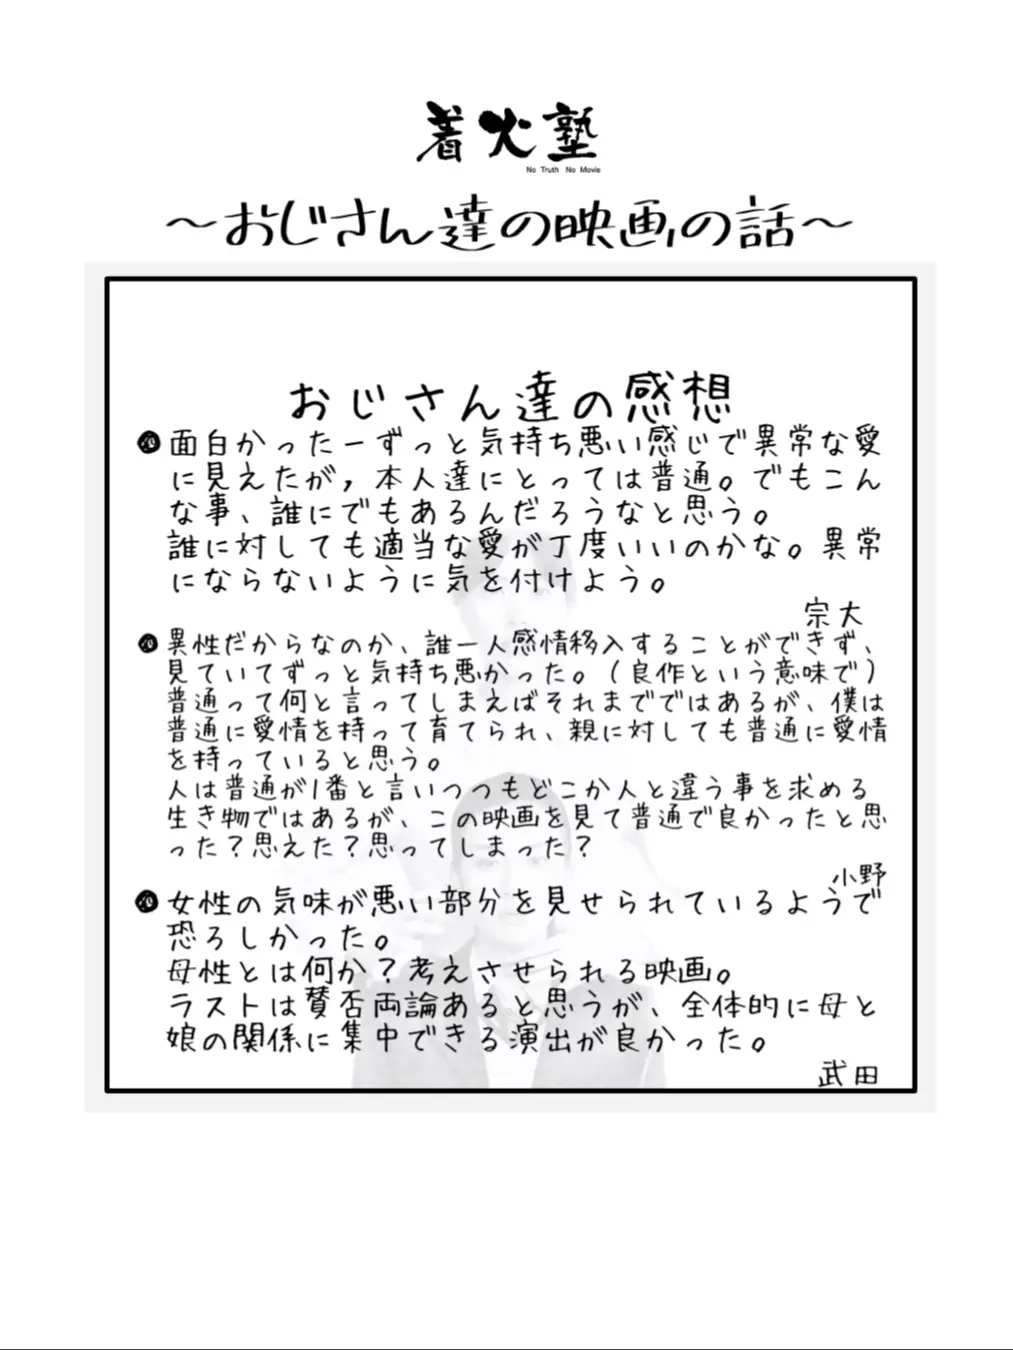 着火塾
No Truth No Movie
〜おじさん達の映画の話〜
おじさん達の感想
面白かったーずっと気持ち悪い感じで異常な愛
に見えたが，本人達にとっては普通。でもこん
な事、誰にでもあるんだろうなと思う。
誰に対しても適当な愛が丁度いいのかな。異常
にならないように気を付けよう。
宗大
異性だからなのか、誰一人感情移入することができず、
見ていてずっと気持ち悪かった。（良作という意味で）
普通って何と言ってしまえばそれまでではあるが、僕は
普通に愛情を持って育てられ、親に対しても普通に愛情
を持っていると思う。
人は普通が1番と言いつつもどこか人と違う事を求める
生き物ではあるが、この映画を見て普通で良かったと思
った？思えた？思ってしまった？
小野
女性の気味が悪い部分を見せられているようで
恐ろしかった。
母性とは何か？考えさせられる映画。
ラストは賛否両論あると思うが、全体的に母と
娘の関係に集中できる演出が良かった。
武田